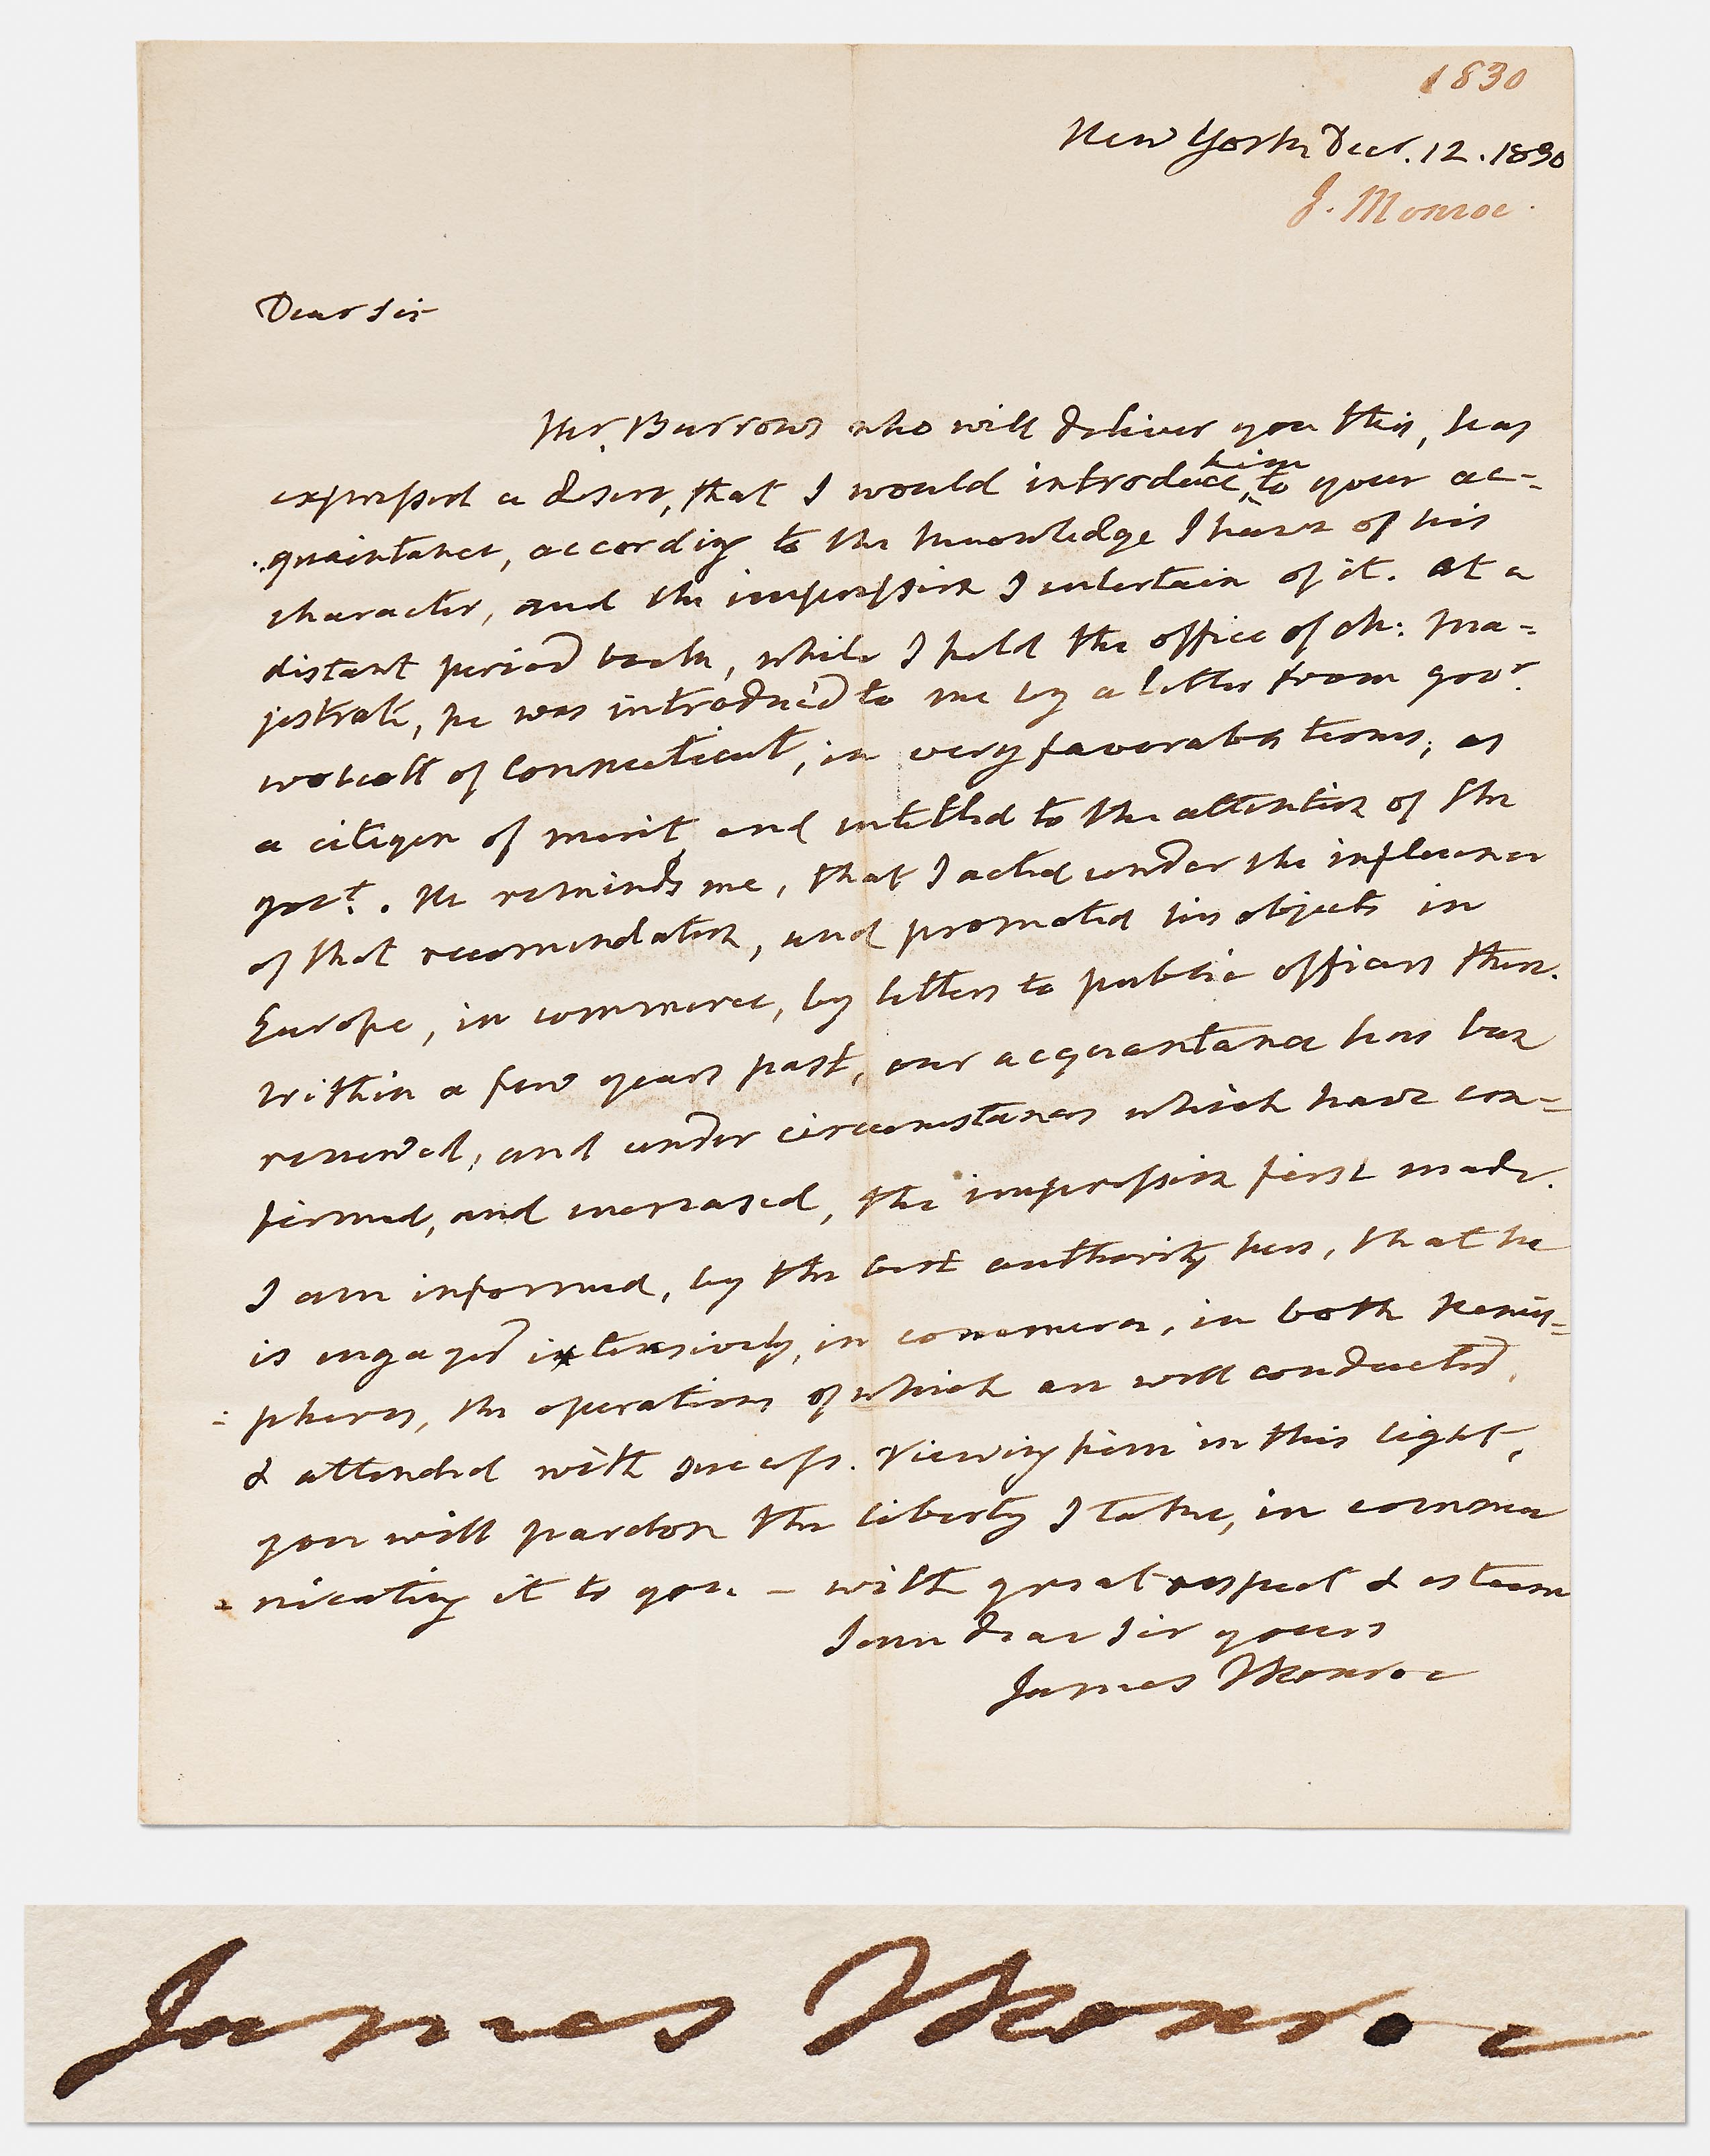 1830
New York Decr. 12. 1830
J. Monroe.
Dear Sir
Mr. Burrows who will deliver you this, has
expressed a desire, that I would introduce him to your ac-
quaintance, according to the knowledge I have of his
character, and the impression I entertain of it. At a
distant period back, while I held the office of ch: ma-
jistrate, he was introduc'd to me by a letter from govr.
wolcott of Connecticut, in very favorable terms, as
a citizen of merit, and intitled to the attention of the
govt. He reminds me, that I acted under the influence
of that recomendation, and promoted his objects in
Europe, in commerce, by letters to public officers there.
within a few years past, our acquaintance has been
renewed, and under circumstances which have con-
firmed, and increased, the impression first made.
I am informed, by the best authority here, that he
is engaged extensively, in commerce, in both hemis-
pheres, the operations of which are well conducted,
& attended with success. Viewing him in this light,
you will pardon the liberty I take, in commu
nicating it to you – with great respect & esteem
I am dear Sir yours
James Monroe
James Monroe